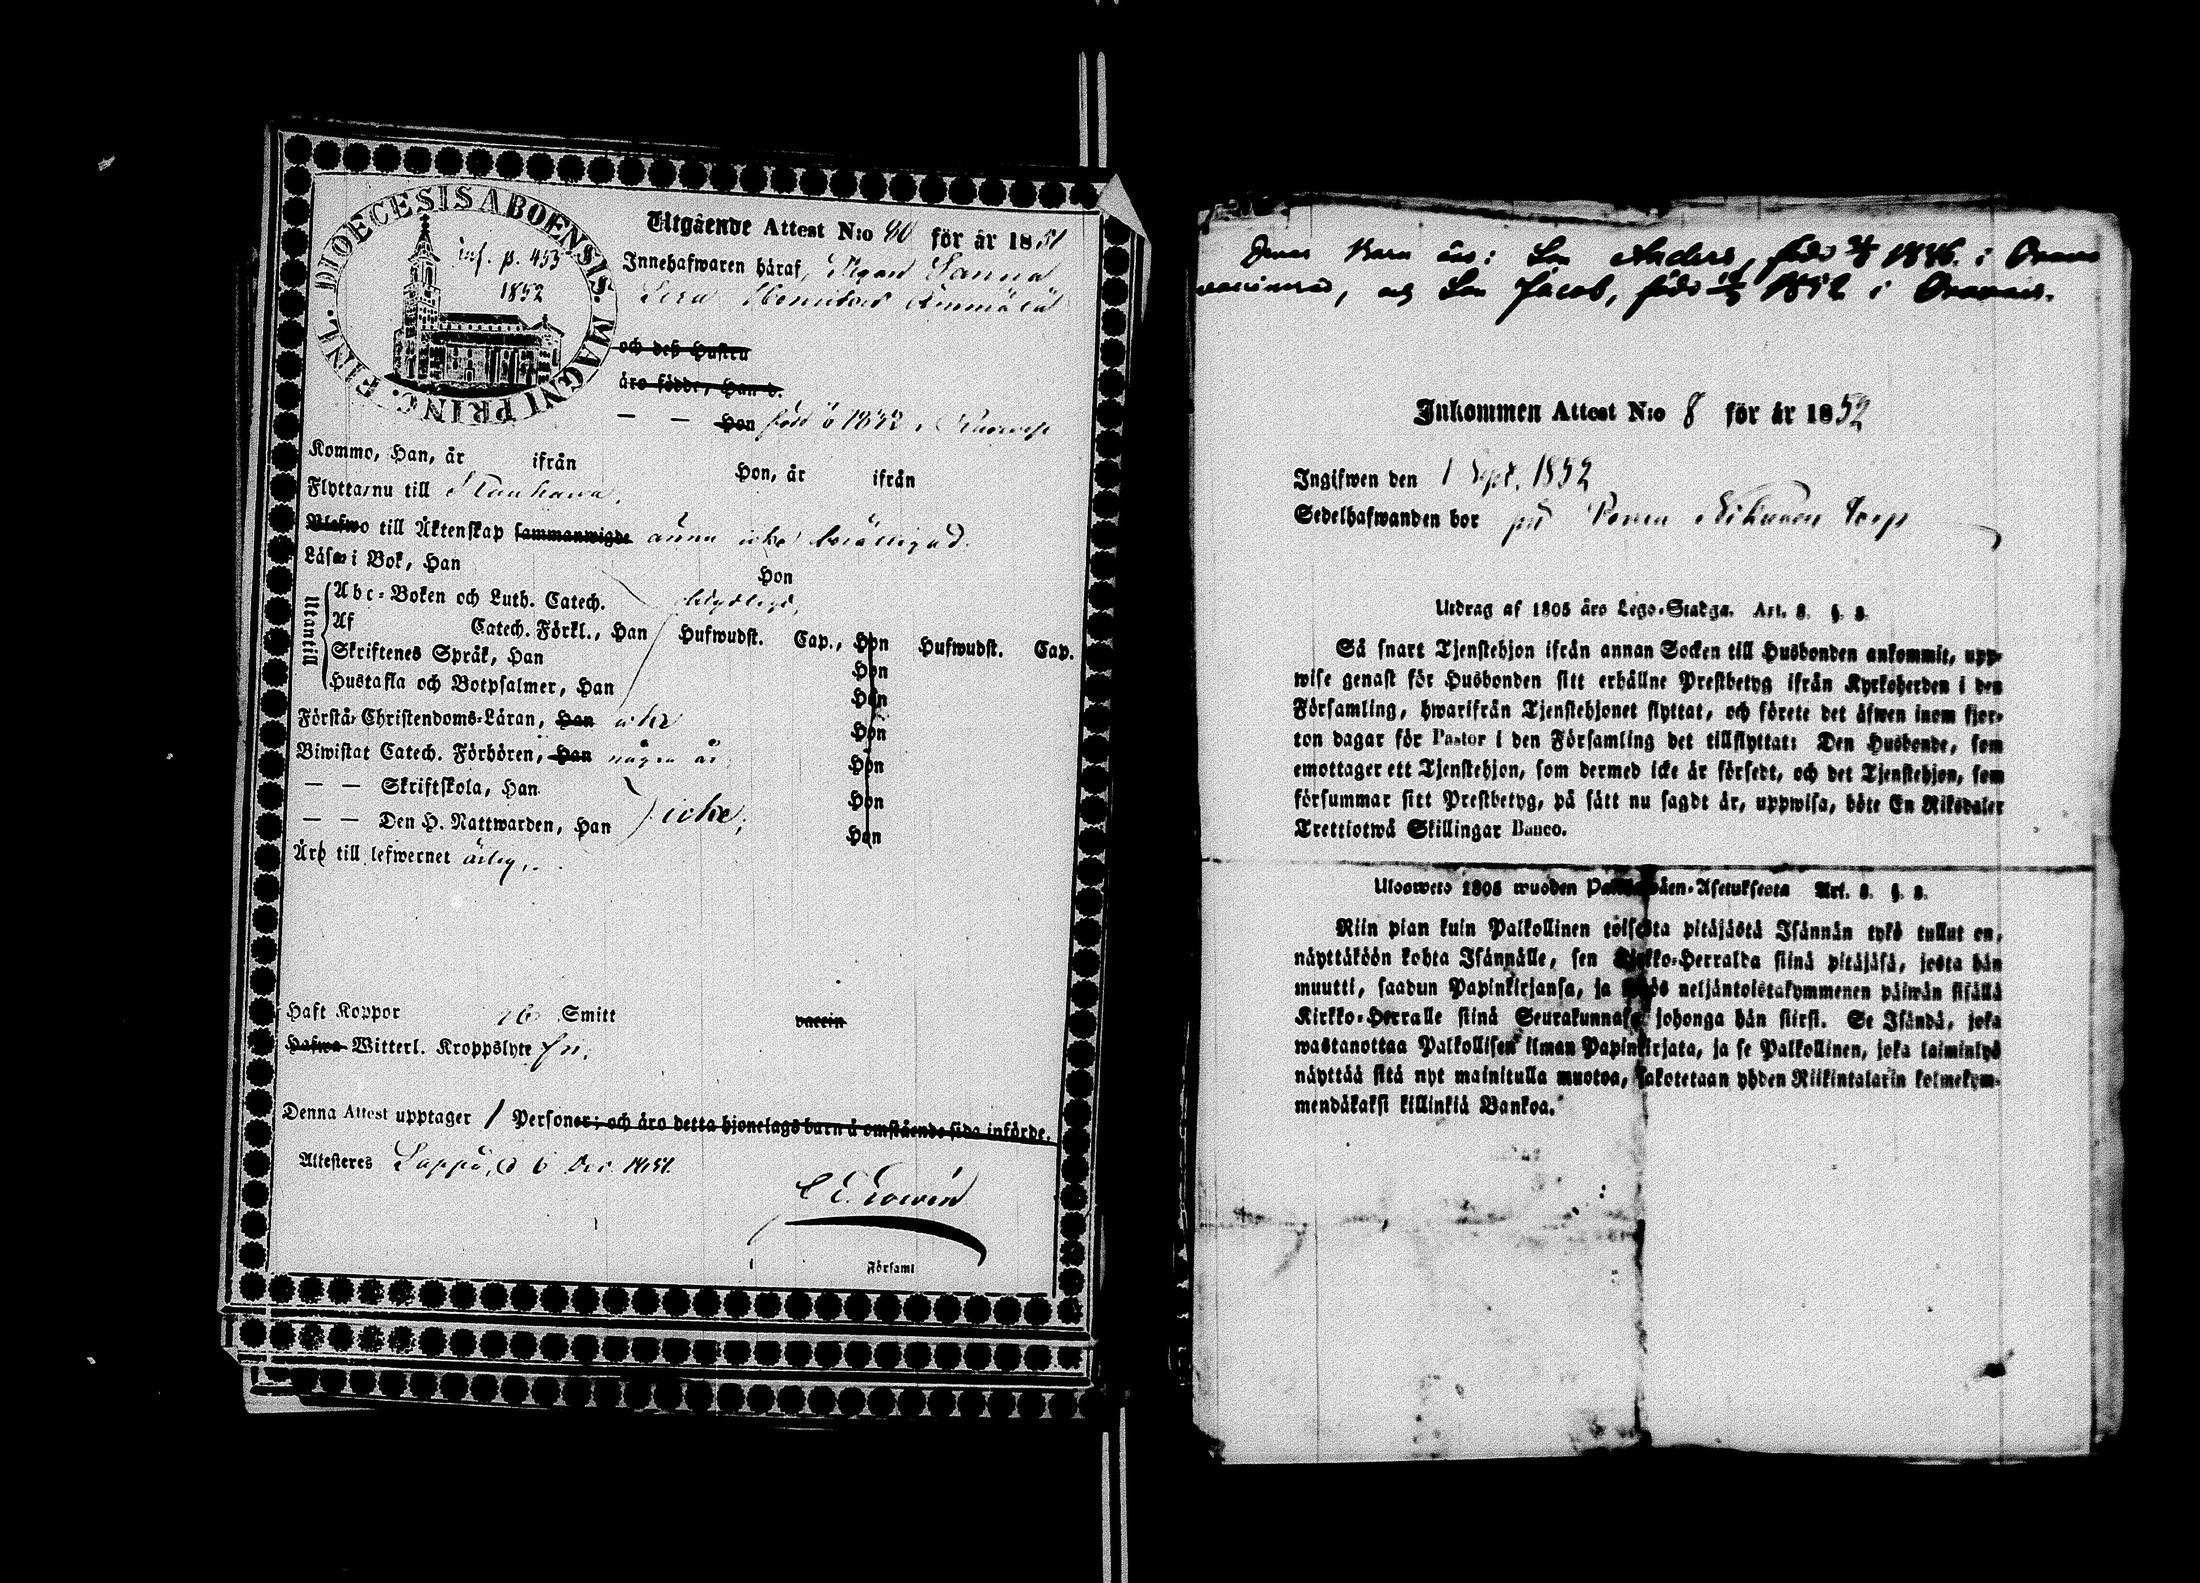 DIOECESIS ABOENSIS. MAGNI PRINC. FINL.
inf. p. 453
1852
Utgående Attest N:o 80 för år 1851
Innehafwaren häraf, Pigan Sanna
Lisa
och deß Hustru
äro födde, Han d.
— — Hon född 1832 i
Kommo, Han, år ifrån Hon, år ifrån
Flytta nu till
Blefwo till Äktenskap sammanwigde ännu icke berättigad.
Läsa i Bok, Han Hon
Utantill
Abc-Boken och Luth. Catech.
Af Catech. Förkl., Han Hufwudst. Cap., Hon Hufwudst. Cap.
Skriftenes Språk, Han Hon
Hustafla och Botpsalmer, Han Hon
Förstå Christendoms-Läran, Han icke Hon
Biwistat Catech. Förhören, Han några år Hon
— — Skriftskola, Han Hon
— — Den H. Nattwarden, Han icke; Hon
Äro till lefwernet ärlig,
Haft Koppor Smitt vaccin
Hafwa Witterl. Kroppslyte fri,
Denna Attest upptager 1 Personer; och äro detta hjonelags barn å omstående sida införde.
Attesteras Lappo, d 6 Dec. 1851.
Församl
barn äro: Son Anders, född 1846 i
och Son Jacob, född 1852 i Oravais.
Inkommen Attest N:o 8 för år 1852
Ingifwen den 1 Sept. 1852
Sedelhafwanden bor på torp
Utdrag af 1805 års Lego-Stadga. Art. 8. §. 8.
Så snart Tjenstehjon ifrån annan Socken till Husbonden ankommit, upp-
wise genast för Husbonden sitt erhållne Prestbetyg ifrån Kyrkoherden i den
Församling, hwarifrån Tjenstehjonet flyttat, och förete det äfwen inom fjor-
ton dagar för Pastor i den Församling det tillflyttat: Den Husbonde, som
emottager ett Tjenstehjon, som dermed icke är försedt, och det Tjenstehjon, som
försummar sitt Prestbetyg, på sätt nu sagdt är, uppwisa, böte En Riksdaler
Trettiotwå Skillingar Banco.
Ulosweto 1805 wuoden Asetuksesta Art. 8. §. 8.
Niin pian kuin Palkollinen toisesta pitäjästä Isännän tykö tullut on,
näyttäköön kohta Isännälle, sen Kirkko-Herralda siinä pitäjäsä, josta hän
muutti, saadun Papinkirjansa, ja myös neljäntoistakymmenen päiwän sisällä
Kirkko-Herralle siinä Seurakunnasa johonga hän siirsi. Se Isändä, joka
wastanottaa Palkollisen ilman Papinkirjata, ja se Palkollinen, joka laiminlyö
näyttää sitä nyt mainitulla muotoa, sakotetaan yhden Riikintalarin kolmekym-
mendäkaksi killinkiä Bankoa.